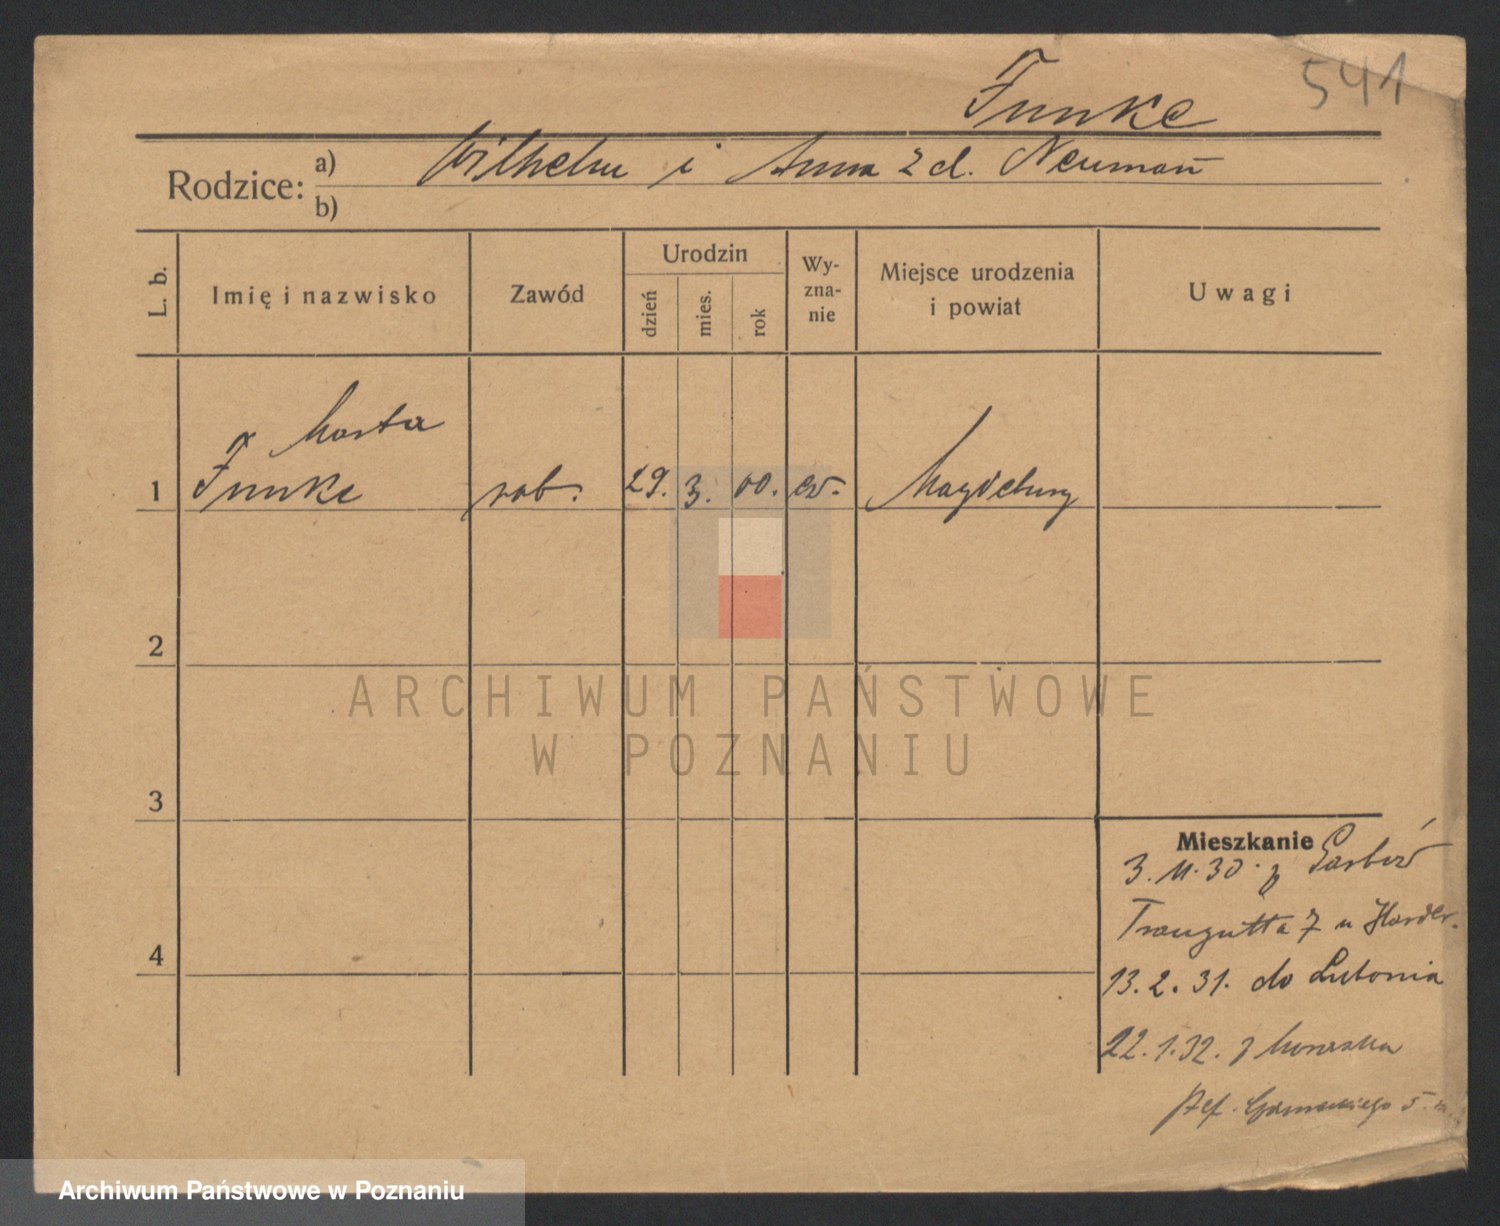 541
Funke
Rodzice: a) Wilhelm i Anna z d. Neumann
b)
L. b.
Imię i nazwisko
Zawód
Urodzin
dzień
mies.
rok
Wy-
zna-
nie
Miejsce urodzenia
i powiat
Uwagi
Marta
1 Funke rob. 29. 3. 00. ew. Magdeburg
2
3
4
ARCHIWUM PAŃSTWOWE
W POZNANIU
Mieszkanie
3. 11. 30. z
Traugutta 7 u Harder.
13. 2. 31. do Lutonia
22. 1. 32. z
5
Archiwum Państwowe w Poznaniu